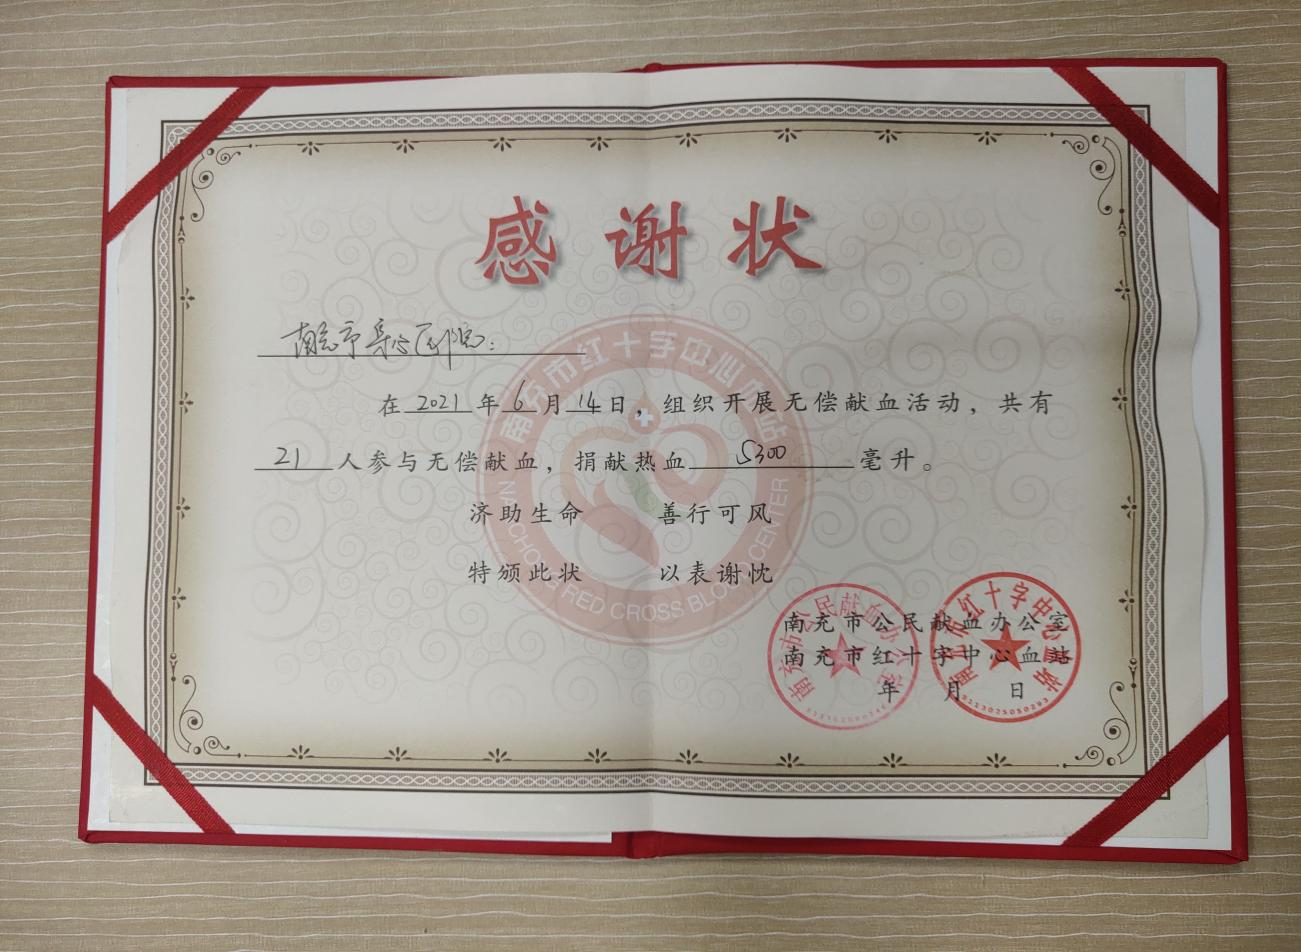 感谢状
南充市身心医院：
在2021年6月14日，组织开展无偿献血活动，共有
21人参与无偿献血，捐献热血5300毫升。
济助生命 善行可风
特颁此状 以表谢忱
南充市公民献血办公室
南充市红十字中心血站
年 月 日
南充市红十字中心血站
NANCHONG RED CROSS BLOOD CENTER
南充市公民献血办公室
南充市红十字中心血站